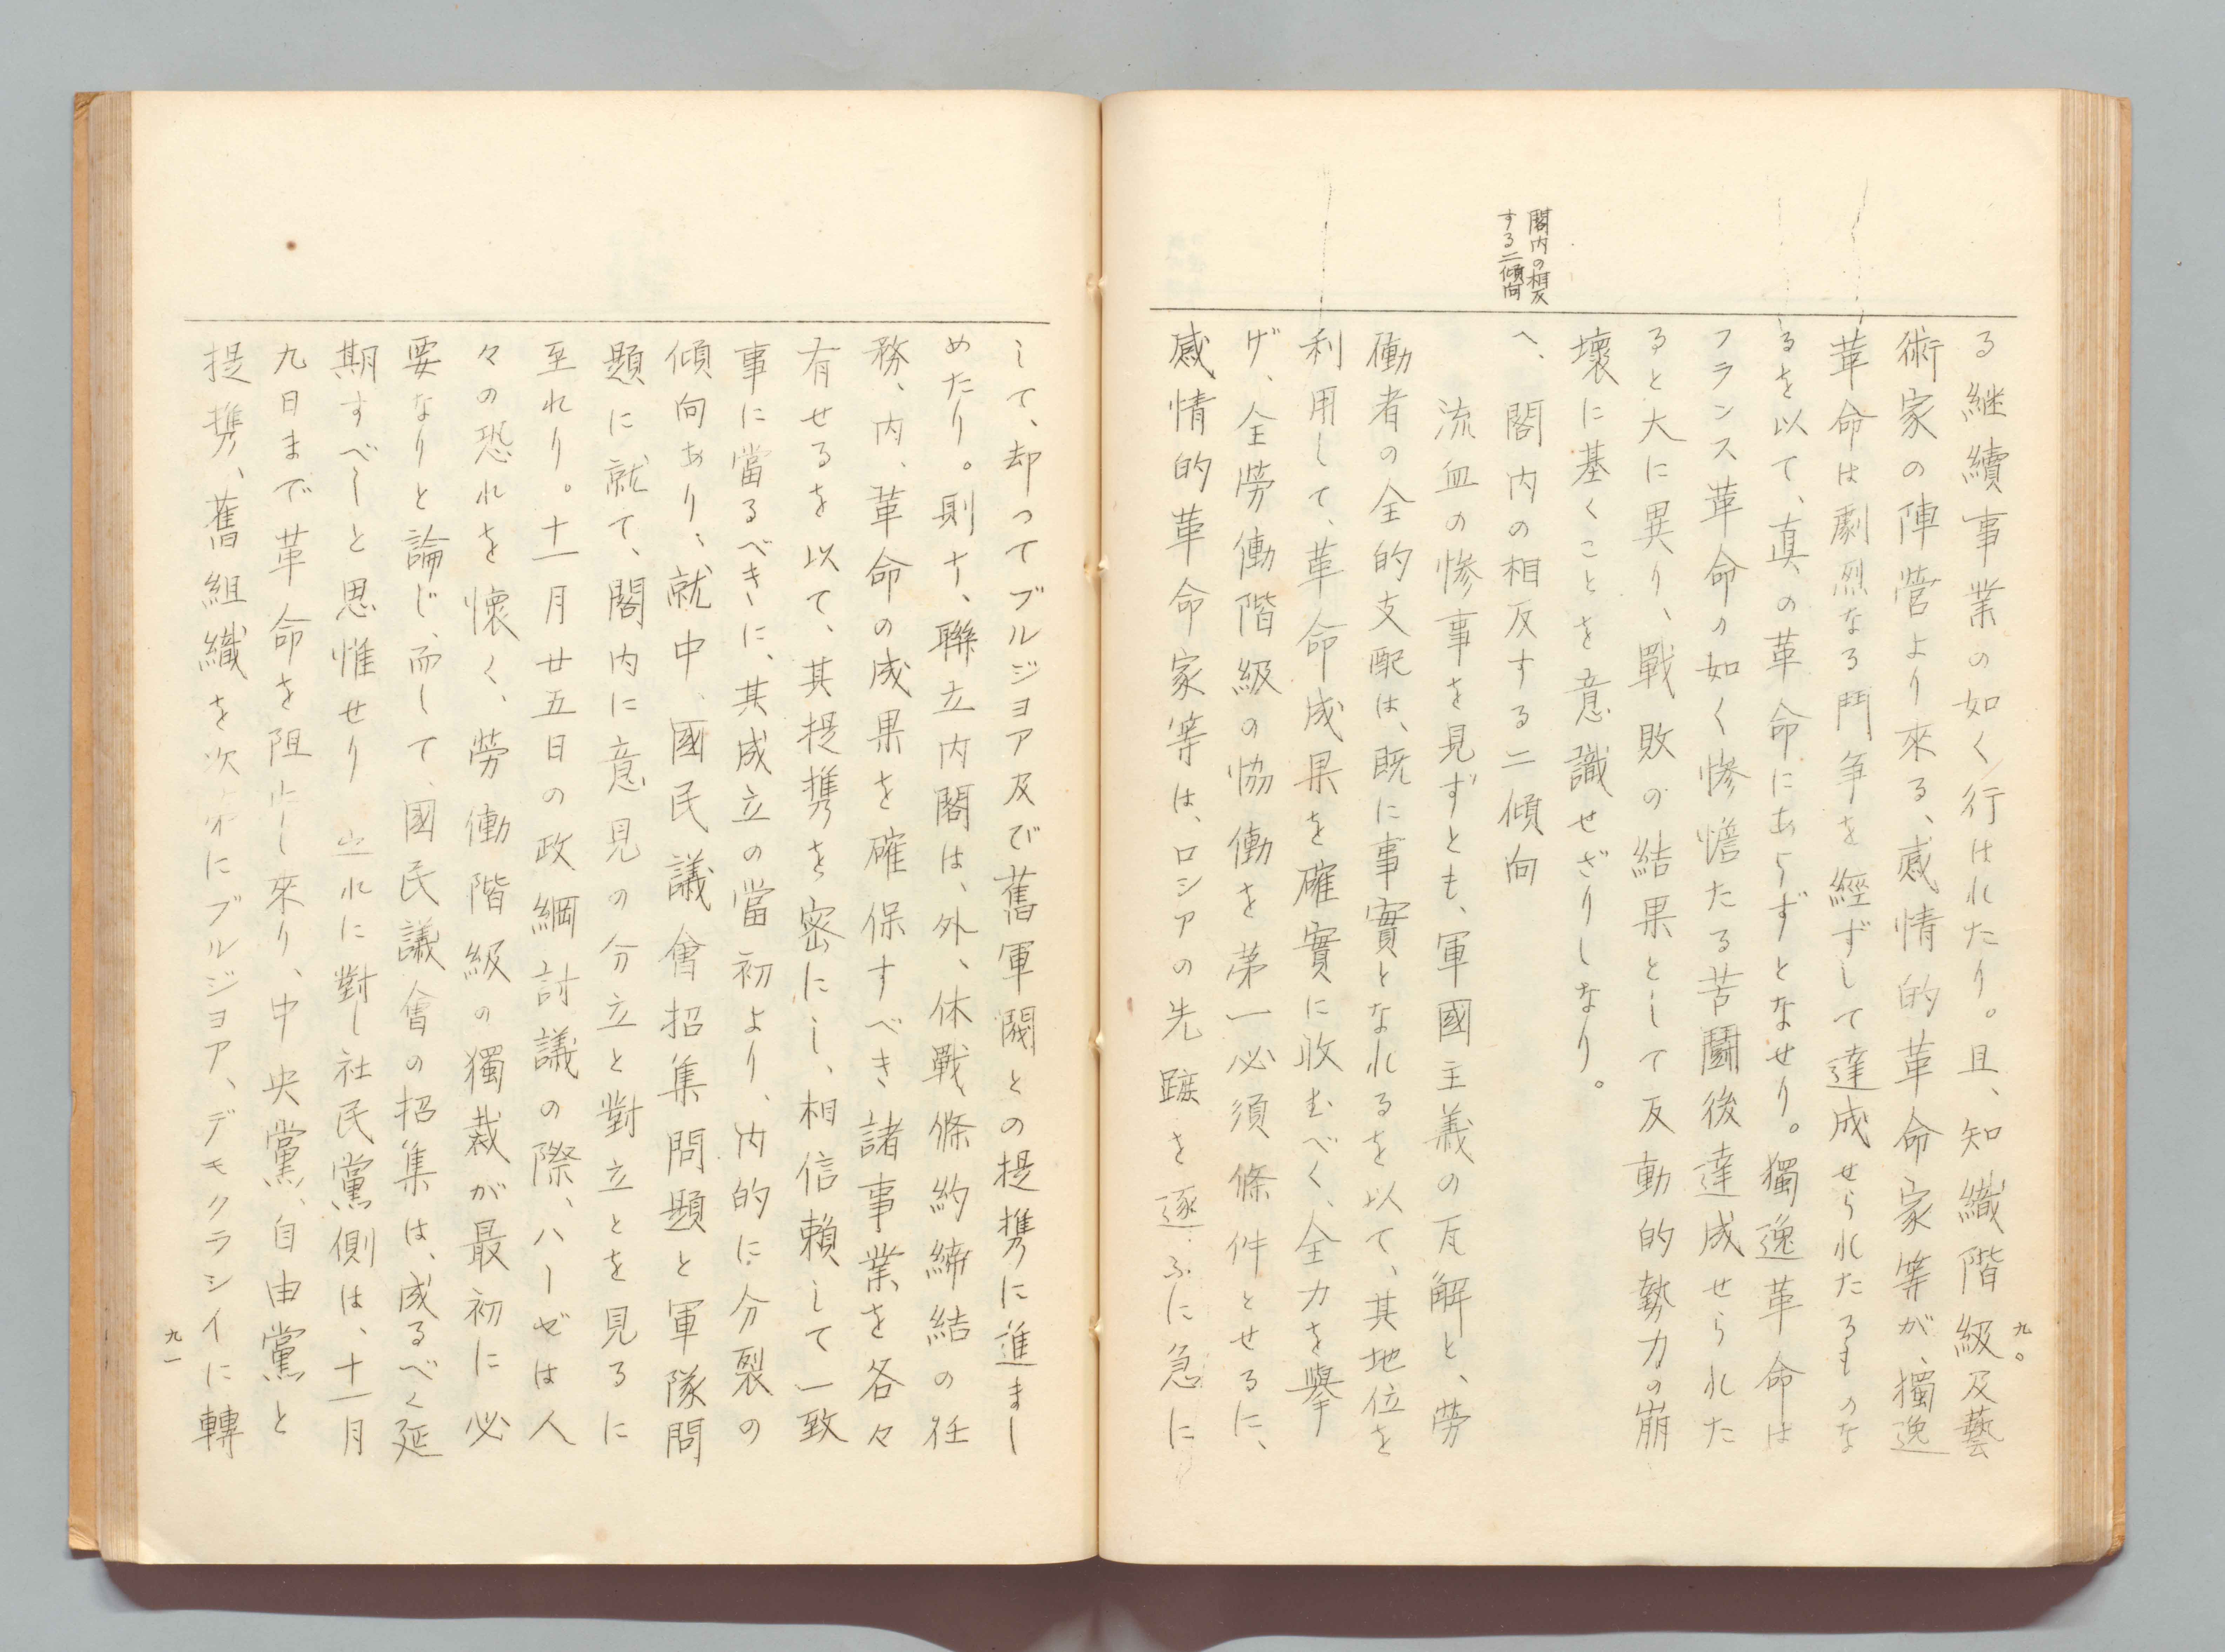 九〇
る継續事業の如く行はれたり。且、知織階級及藝
術家の陣営より來る、感情的革命家等が、獨逸
革命は劇烈なる鬥争を經ずして達成せられたるものな
るを以て、真の革命にあらずとなせり。獨逸革命は
フランス革命の如く惨憺たる苦鬪後達成せられた
ると大に異り、戰敗の結果として反動的勢力の崩
壊に基くことを意識せざりしなり。
閣内の相反
する二傾向
へ、閣内の相反する二傾向
流血の惨事を見ずとも、軍國主義の瓦解と、労
働者の全的支配は、既に事實となれるを以て、其地位を
利用して、革命成果を確實に收むべく、全力を擧
げ、全労働階級の協働を第一必須條件とせるに、
感情的革命家等は、ロシアの先蹤を逐ふに急に
して、却ってブルジョア及び舊軍閥との提携に進まし
めたり。則ち、聯立内閣は、外、休戰條約締結の任
務、内、革命の成果を確保すべき諸事業を各々
有せるを以て、其提携を密にし、相信賴して一致
事に當るべきに、其成立の當初より、内的に分裂の
傾向あり、就中、國民議會招集問題と軍隊問
題に就て、閣内に意見の分立と對立とを見るに
至れり。十一月廿五日の政綱討議の際、ハーゼは人
々の恐れを懐く、労働階級の獨裁が最初に必
要なりと論じ、而して、國民議會の招集は、成るべく延
期すべしと思惟せり 之れに對し社民黨側は、十一月
九日まで革命を阻止し來り、中央黨、自由黨と
提携、舊組織を次第にブルジョア、デモクラシイに轉
九一